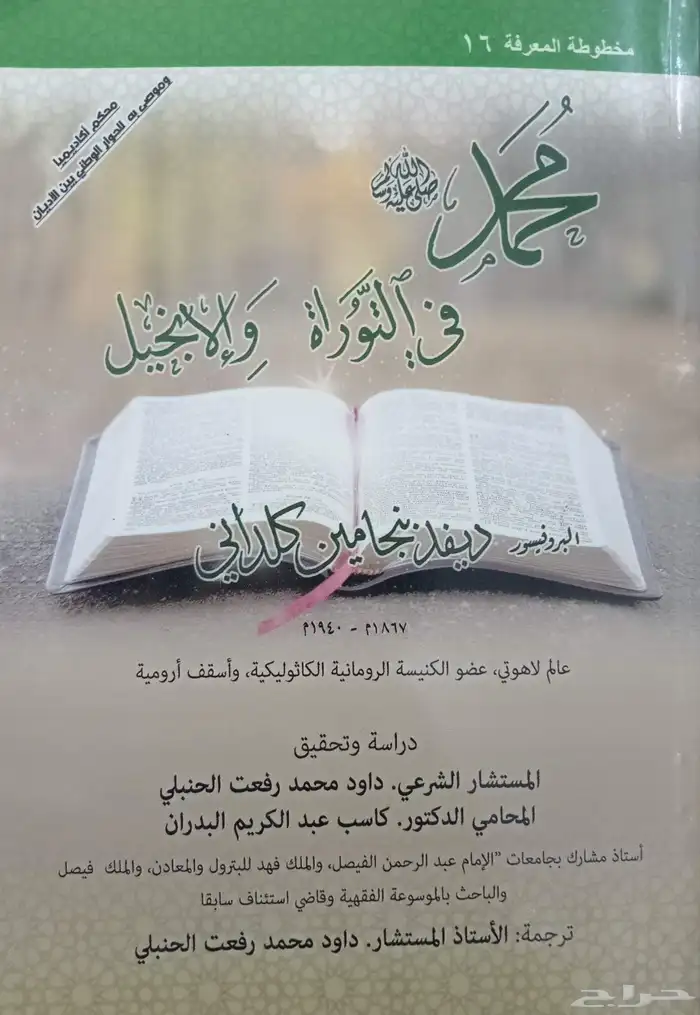 مخطوطة المعرفة ١٦
محكم أكاديميا
وموصى به للحوار الوطني بين الأديان
مُحَمَّد صلى الله عليه وسلم
في التَّوْرَاةِ وَالإنجيل
البروفيسور ديفد بنجامين كلداني
١٨٦٧م - ١٩٤٠م
عالم لاهوتي، عضو الكنيسة الرومانية الكاثوليكية، وأسقف أرومية
دراسة وتحقيق
المستشار الشرعي. داود محمد رفعت الحنبلي
المحامي الدكتور. كاسب عبد الكريم البدران
أستاذ مشارك بجامعات "الإمام عبد الرحمن الفيصل، والملك فهد للبترول والمعادن، والملك فيصل
والباحث بالموسوعة الفقهية وقاضي استئناف سابقا
ترجمة: الأستاذ المستشار. داود محمد رفعت الحنبلي
حراج